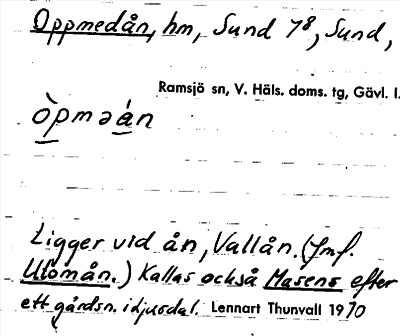 Oppmedån, hm, Sund 7⁸, Sund,
Ramsjö sn, V. Häls. doms. tg, Gävl. l.
òpməán
Ligger vid ån, Vallån. (Jmf.
Utomån.) Kallas också Masens efter
ett gårdsn. i Ljusdal. Lennart Thunvall 1970